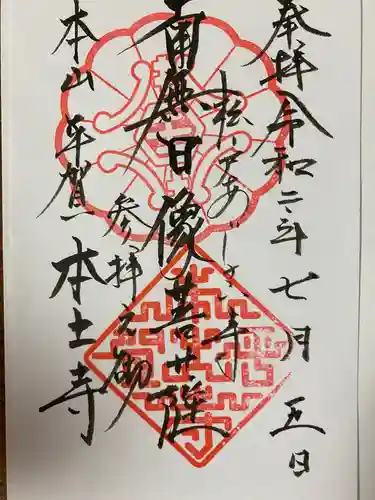 奉拝 令和二年七月五日
松戸あじさい寺
南無日像菩薩
参拝之御
本山平賀 本土寺